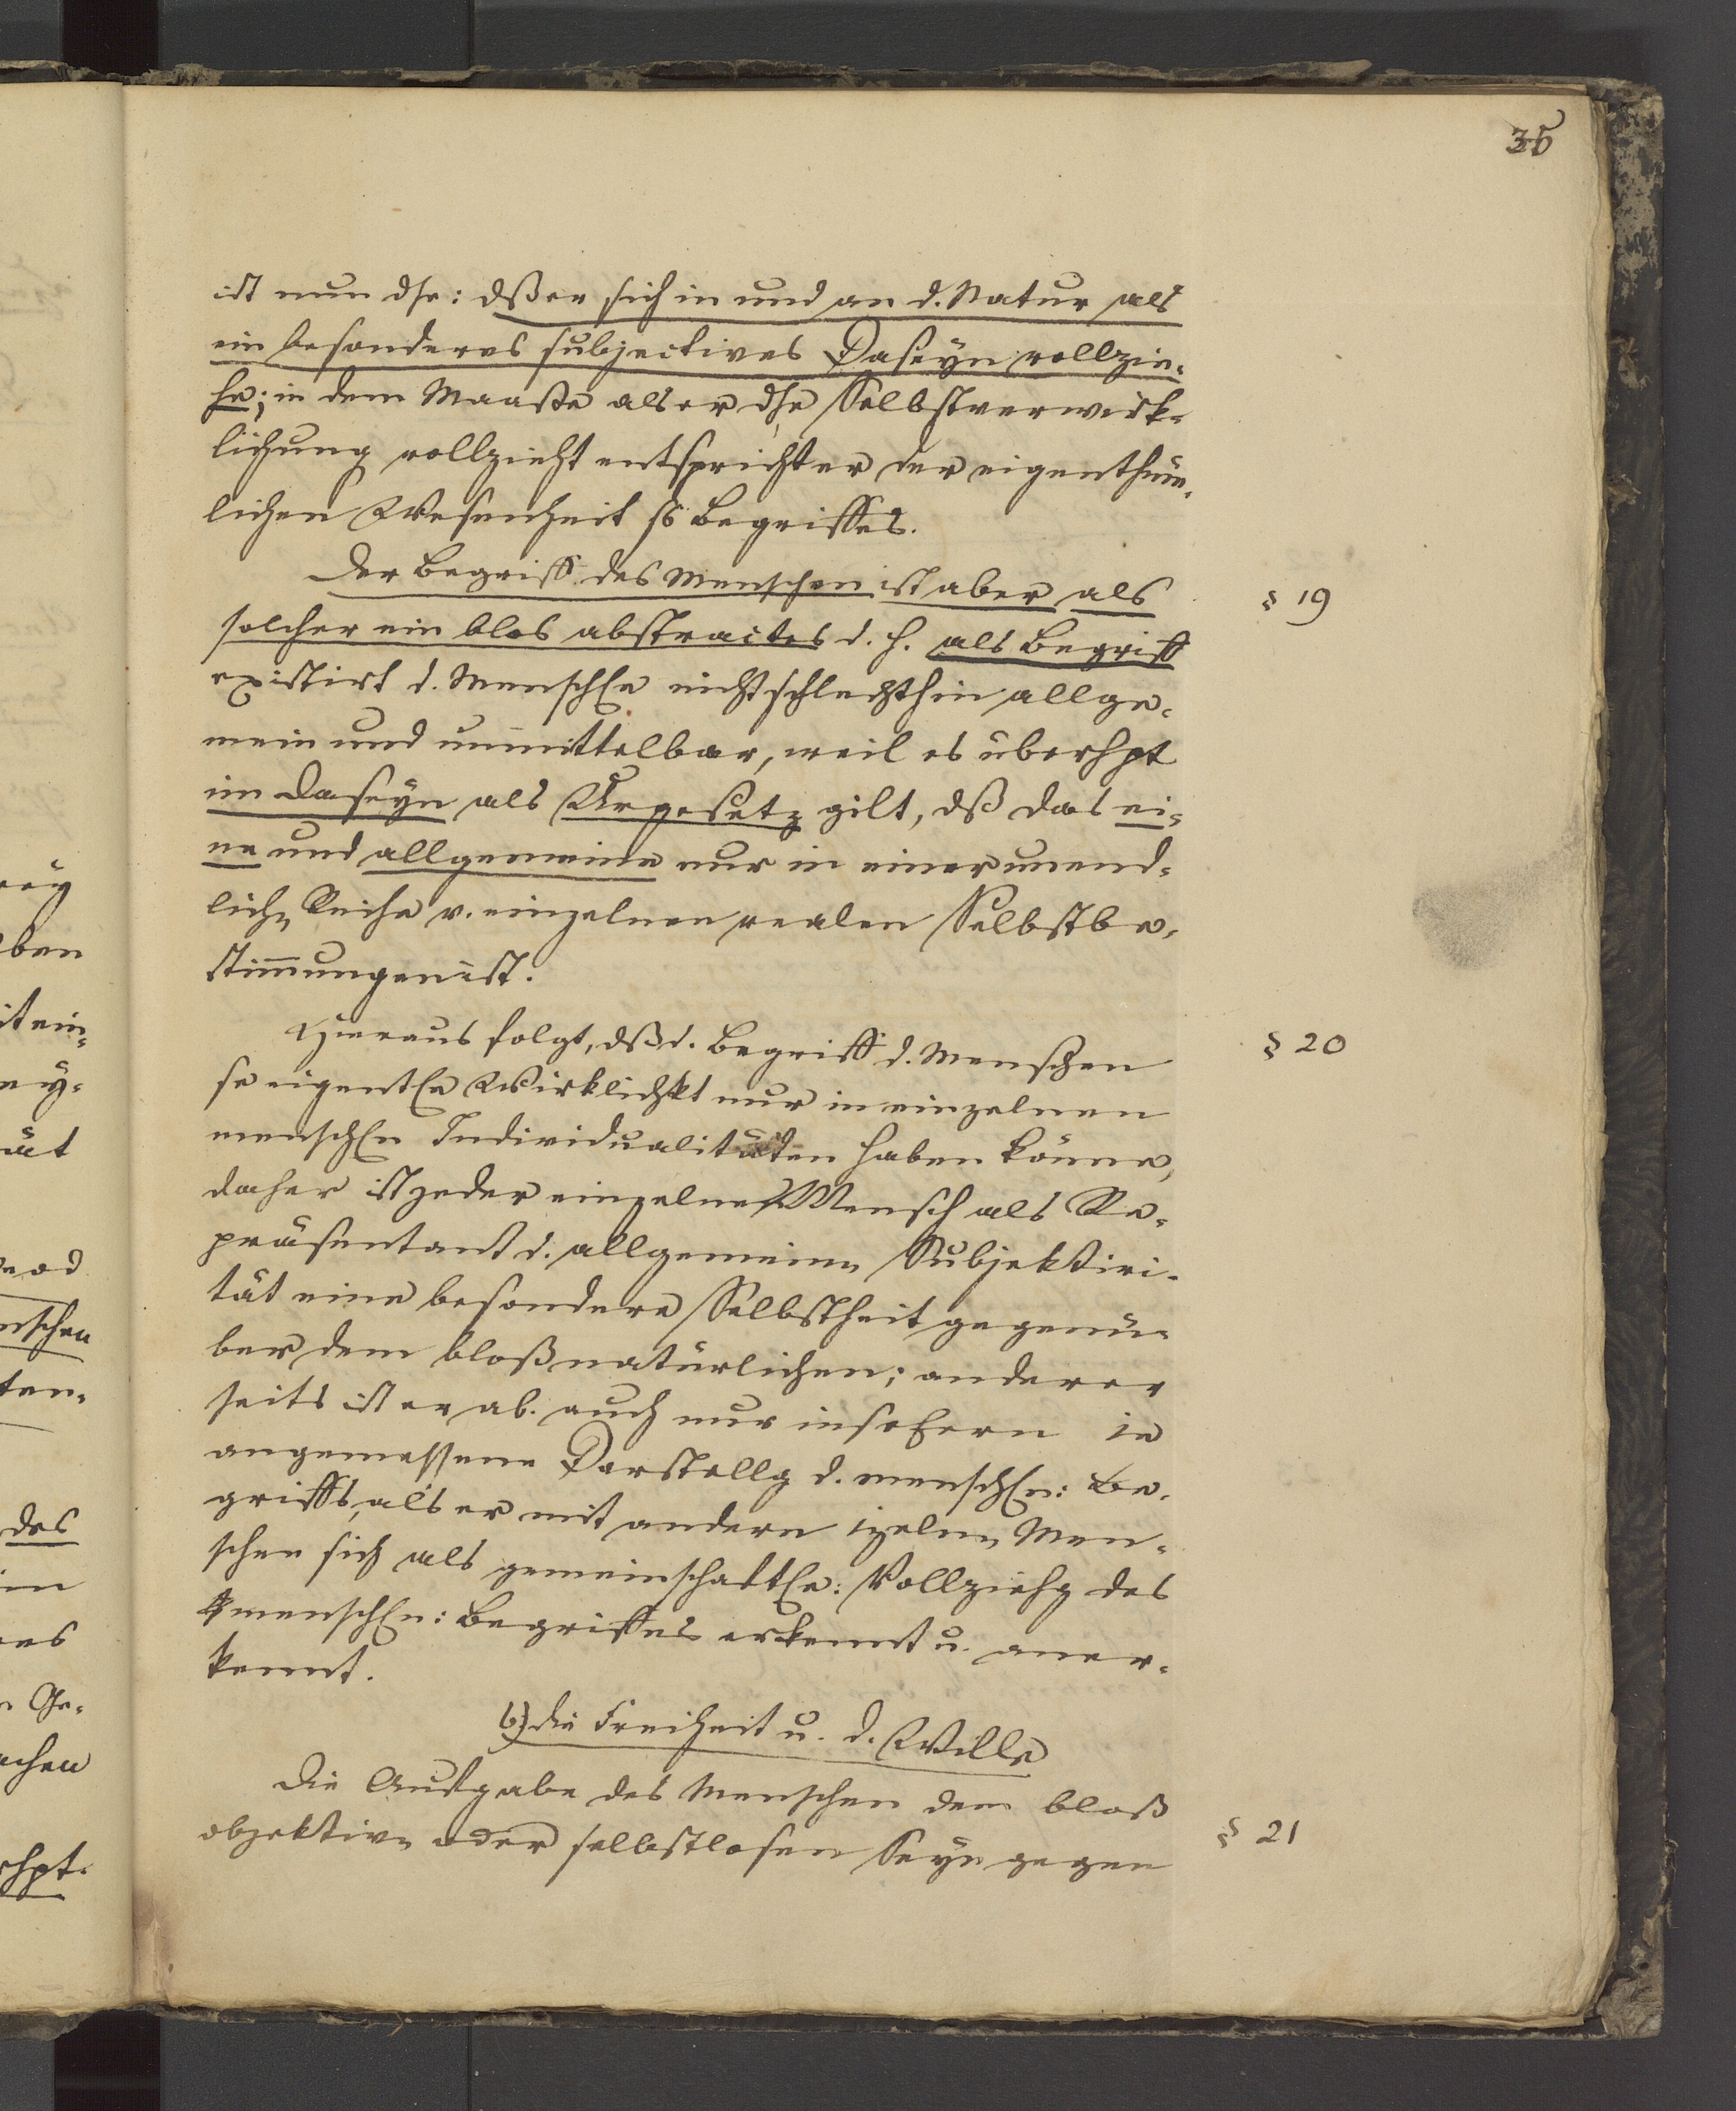 35
ist nun dse: dß er sich in und an d. Natur als
ein besonderes subjectives Daseyn vollzie-
he; in dem Maaße als er dse Selbstverwirk-
lichung vollzieht entspricht er der eigenthüm-
lichen Wesenheit ss Begriffes.
Der Begriff des Menschen ist aber als
§ 19
solcher ein blos abstractes d. h. als Begriff
existirt d. Menschl. nicht schlechthin allge-
mein und unmittelbar, weil es überhpt
im Daseyn als Urgesetz gilt, dß das ei-
ne und allgemeine nur in einer unend-
lichn Reihe v. einzelnen realen Selbstbe-
stimmungen ist.
Hieraus folgt, dß d. Begriff d. Menschen
§ 20
se eigentle Wirklichkt nur in einzelnen
menschln Individualitäten haben könne,
daher ist jeder einzelne Mensch als Re-
präsentant d. allgemeinn Subjektivi-
tät eine besondere Selbstheit gegenü-
ber dem bloß natürlichen; anderer
seits ist er ab. auch nur insofern ie
angemessene Darstellg d. menschln: Be-
griffs, als er mit andern izelnn Men-
schen sich als gemeinschaftle: Vollziehg des
menschln: Begriffes erkennt u. aner-
kennt.
b) die Freiheit u. d. Wille
Die Aufgabe des Menschen dem bloß
§ 21
objektivn oder selbstlosen Seyn gegen
rey
ben
it ein-
ey-
ät
e od
nschen
ten-
des
im
nes
n Ge-
achen
rhpt.